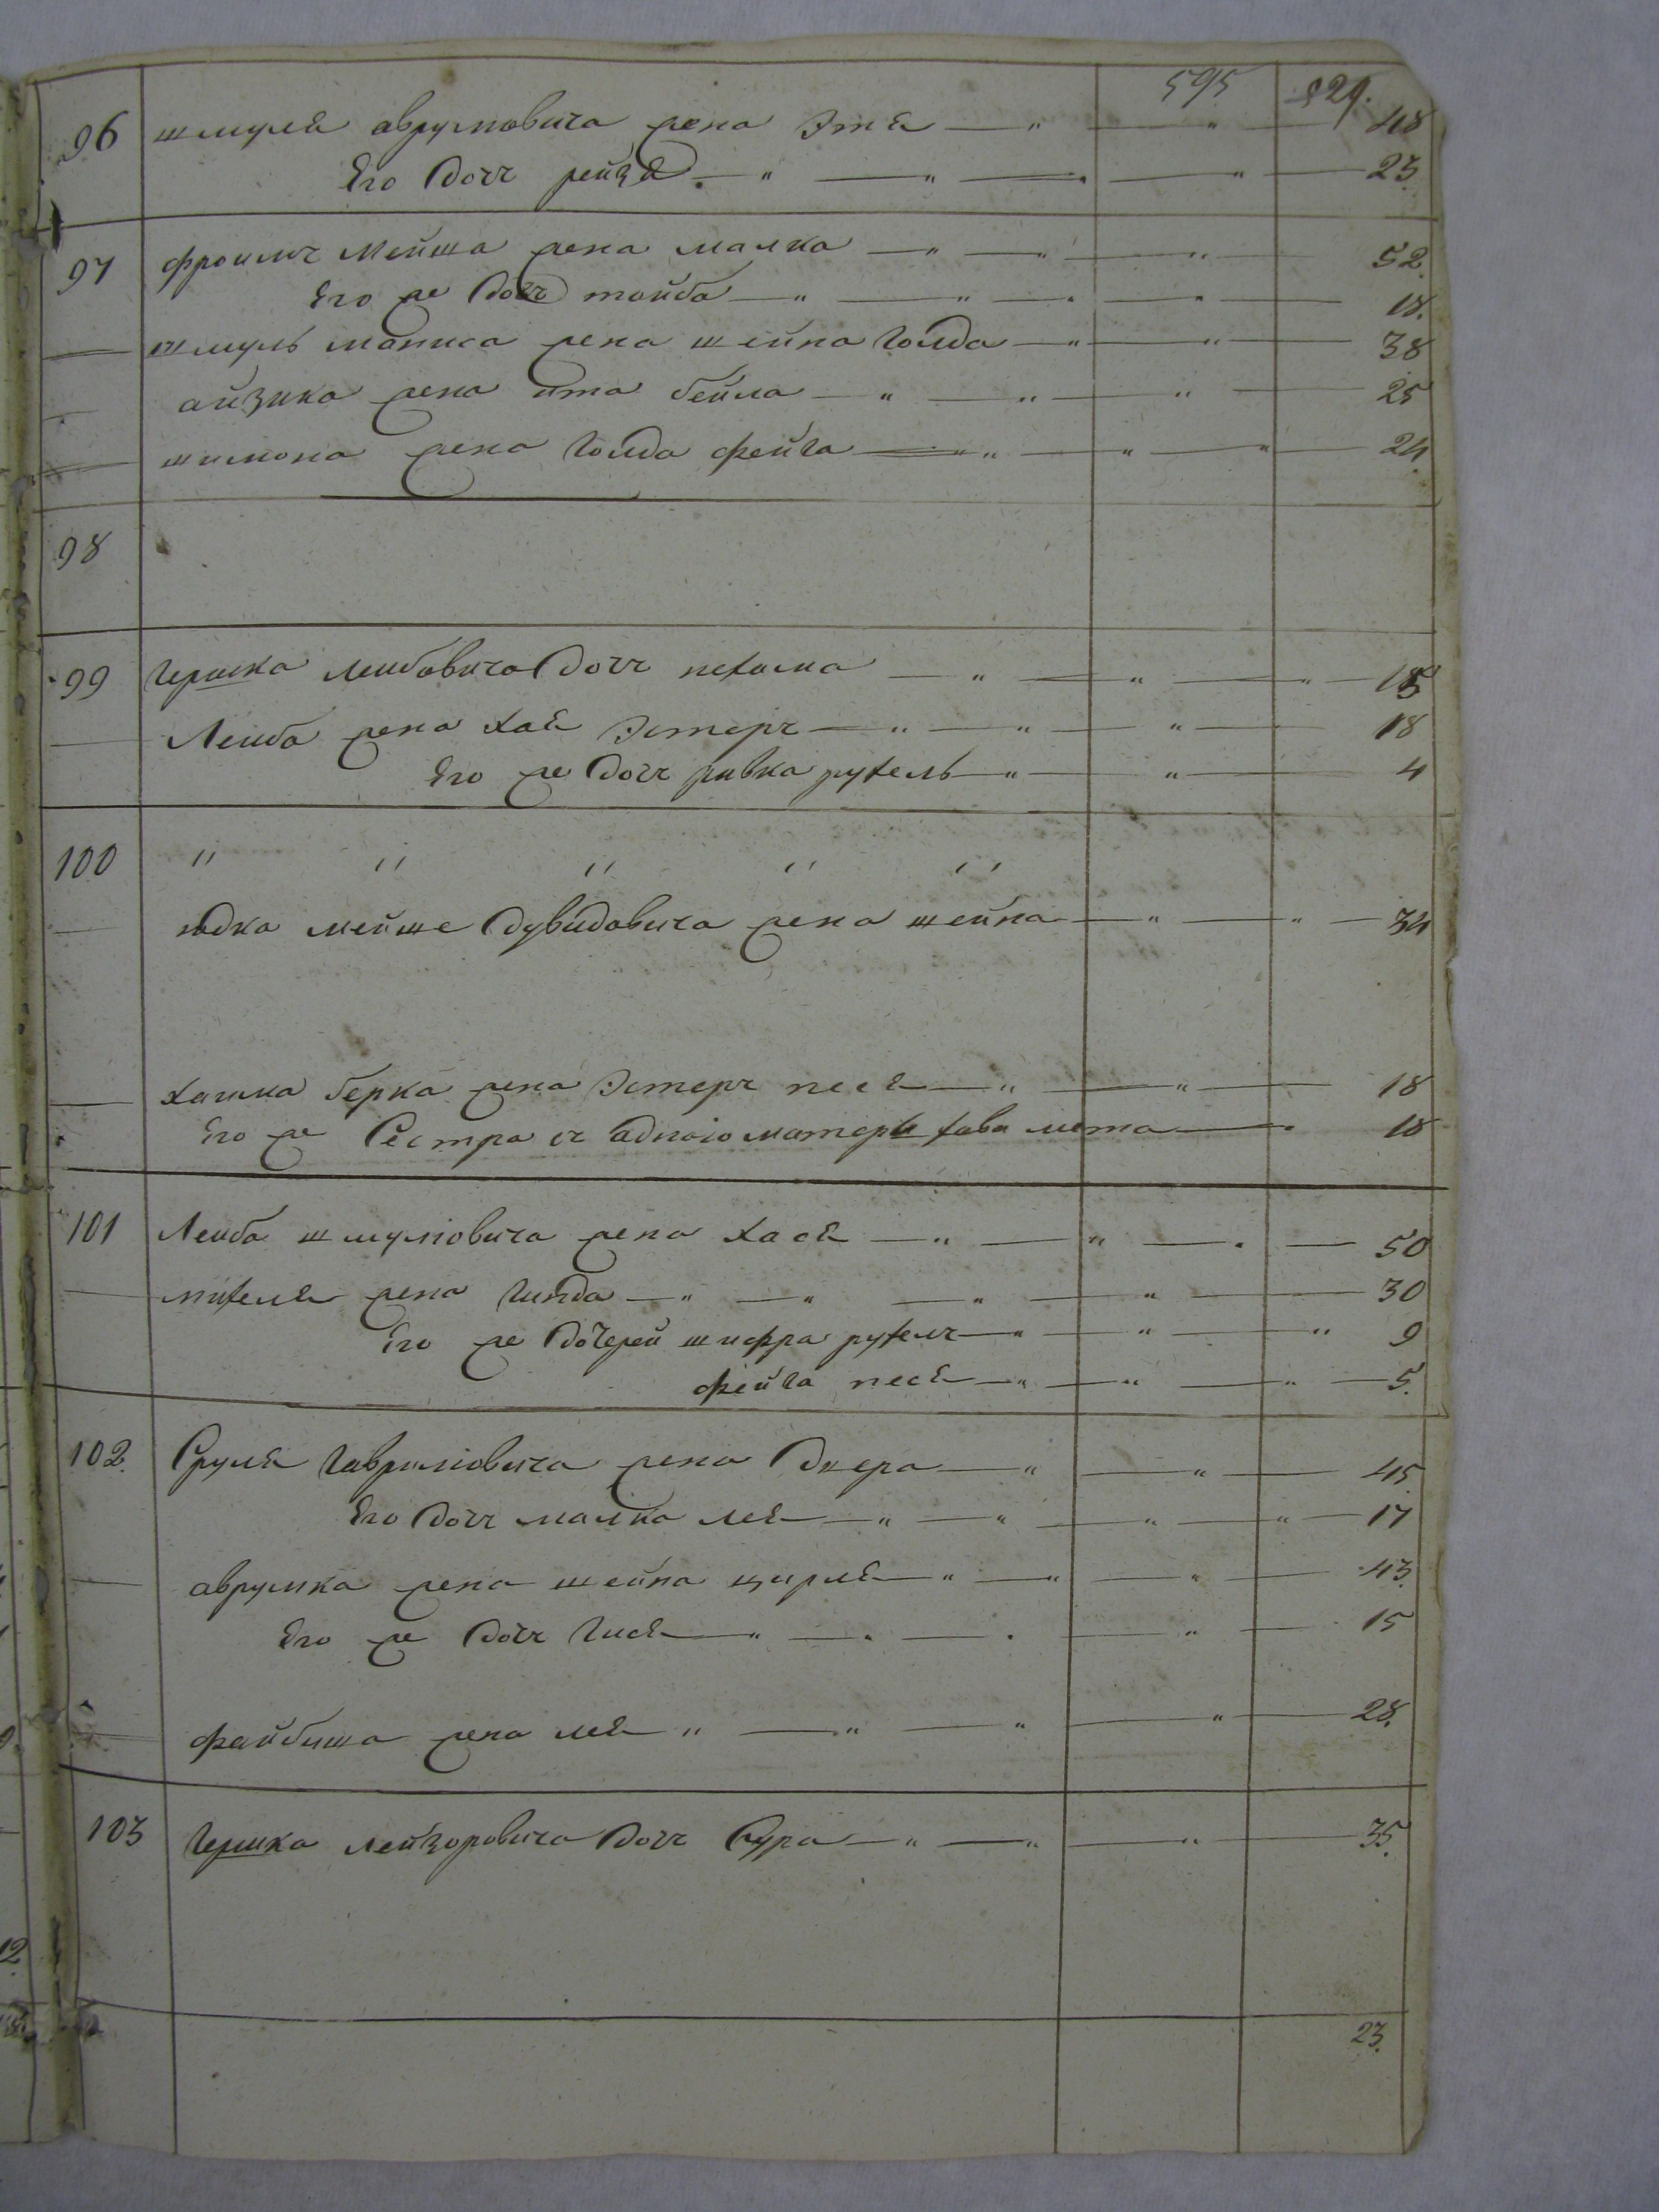 595 529.
96 шмуля аврумовича жена Этя 48
Его дочъ рейзя 23
97 фроимъ Мейша жена малка 52
Его же дочъ тайба 18.
шмуль маниса жена шейна голда 38
айзика жена ита бейла 25
шимона жена голда фейга 24
98
99 Гершка Лейбовича дочъ нехама 18
Лейба жена хая Эстеръ 18
Его же дочъ ривка рухель 4
100 " " " " "
юдка мейше дувидовича жена шейна 34
хаима берка жена Эстеръ песя 18
Его же Сестра съ адною матери хава 18
101 Лейба шмулiовича жена хася 50
михеля жена гинда 30
Его же дочерей шифра рухелъ 9
фейга песя 5.
102. Сруля гаврилiовича жена двера 45
Его дочъ малка лея 17
аврумка жена шейна цирля 43.
Его же дочъ гися 15
файбиша жена лея 28.
103 Гершка лейзоровича дочъ Сура 35.
23.